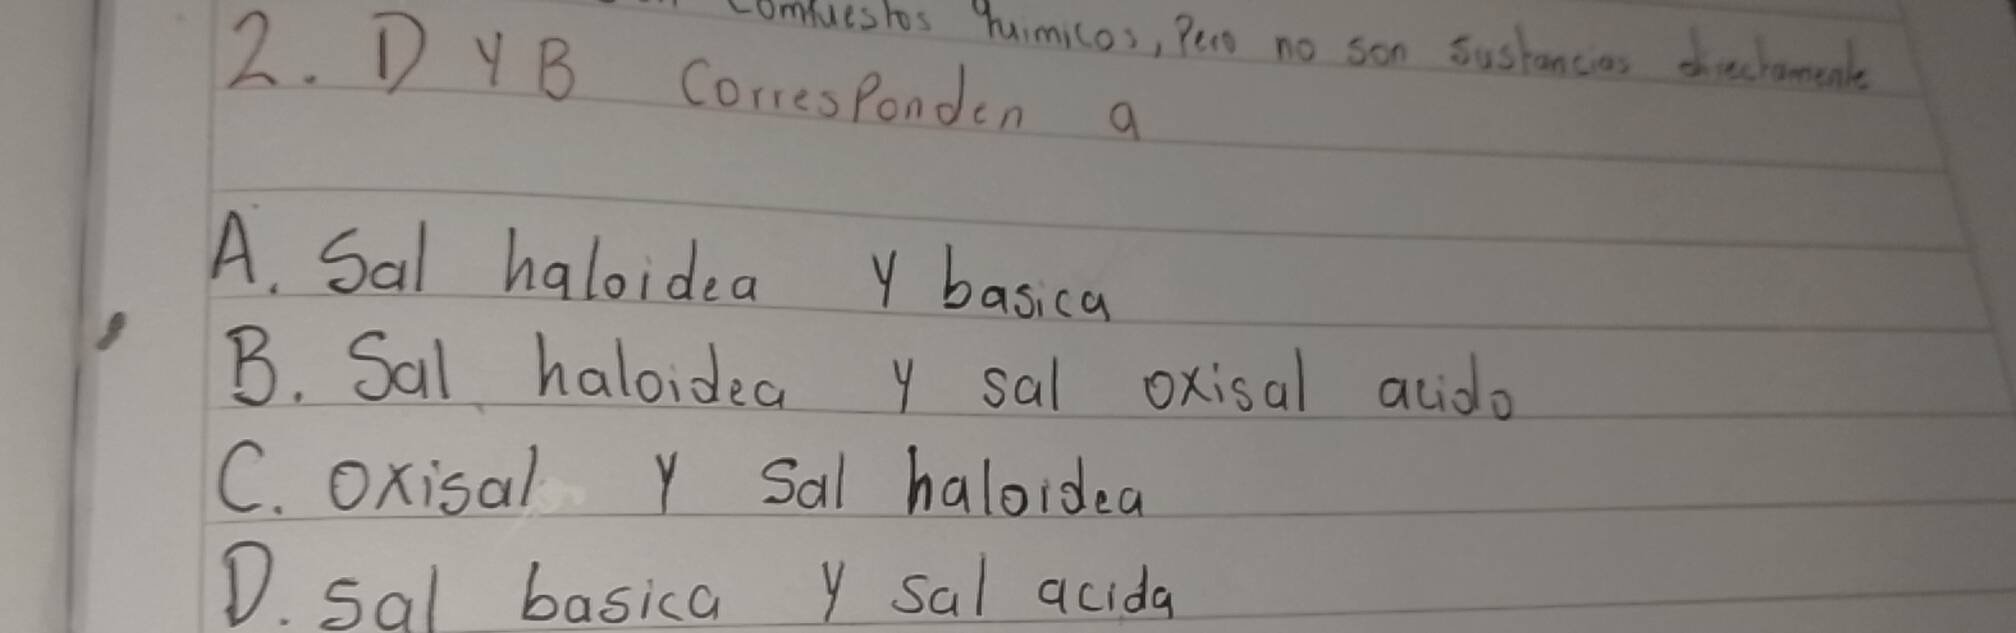 comfuestos quimicos, Pero no son sustancias directamente
2. D Y B Corresponden a
A. Sal haloidea y basica
B. Sal haloidea y sal oxisal acido
C. oxisal y Sal haloidea
D. sal basica y sal acida